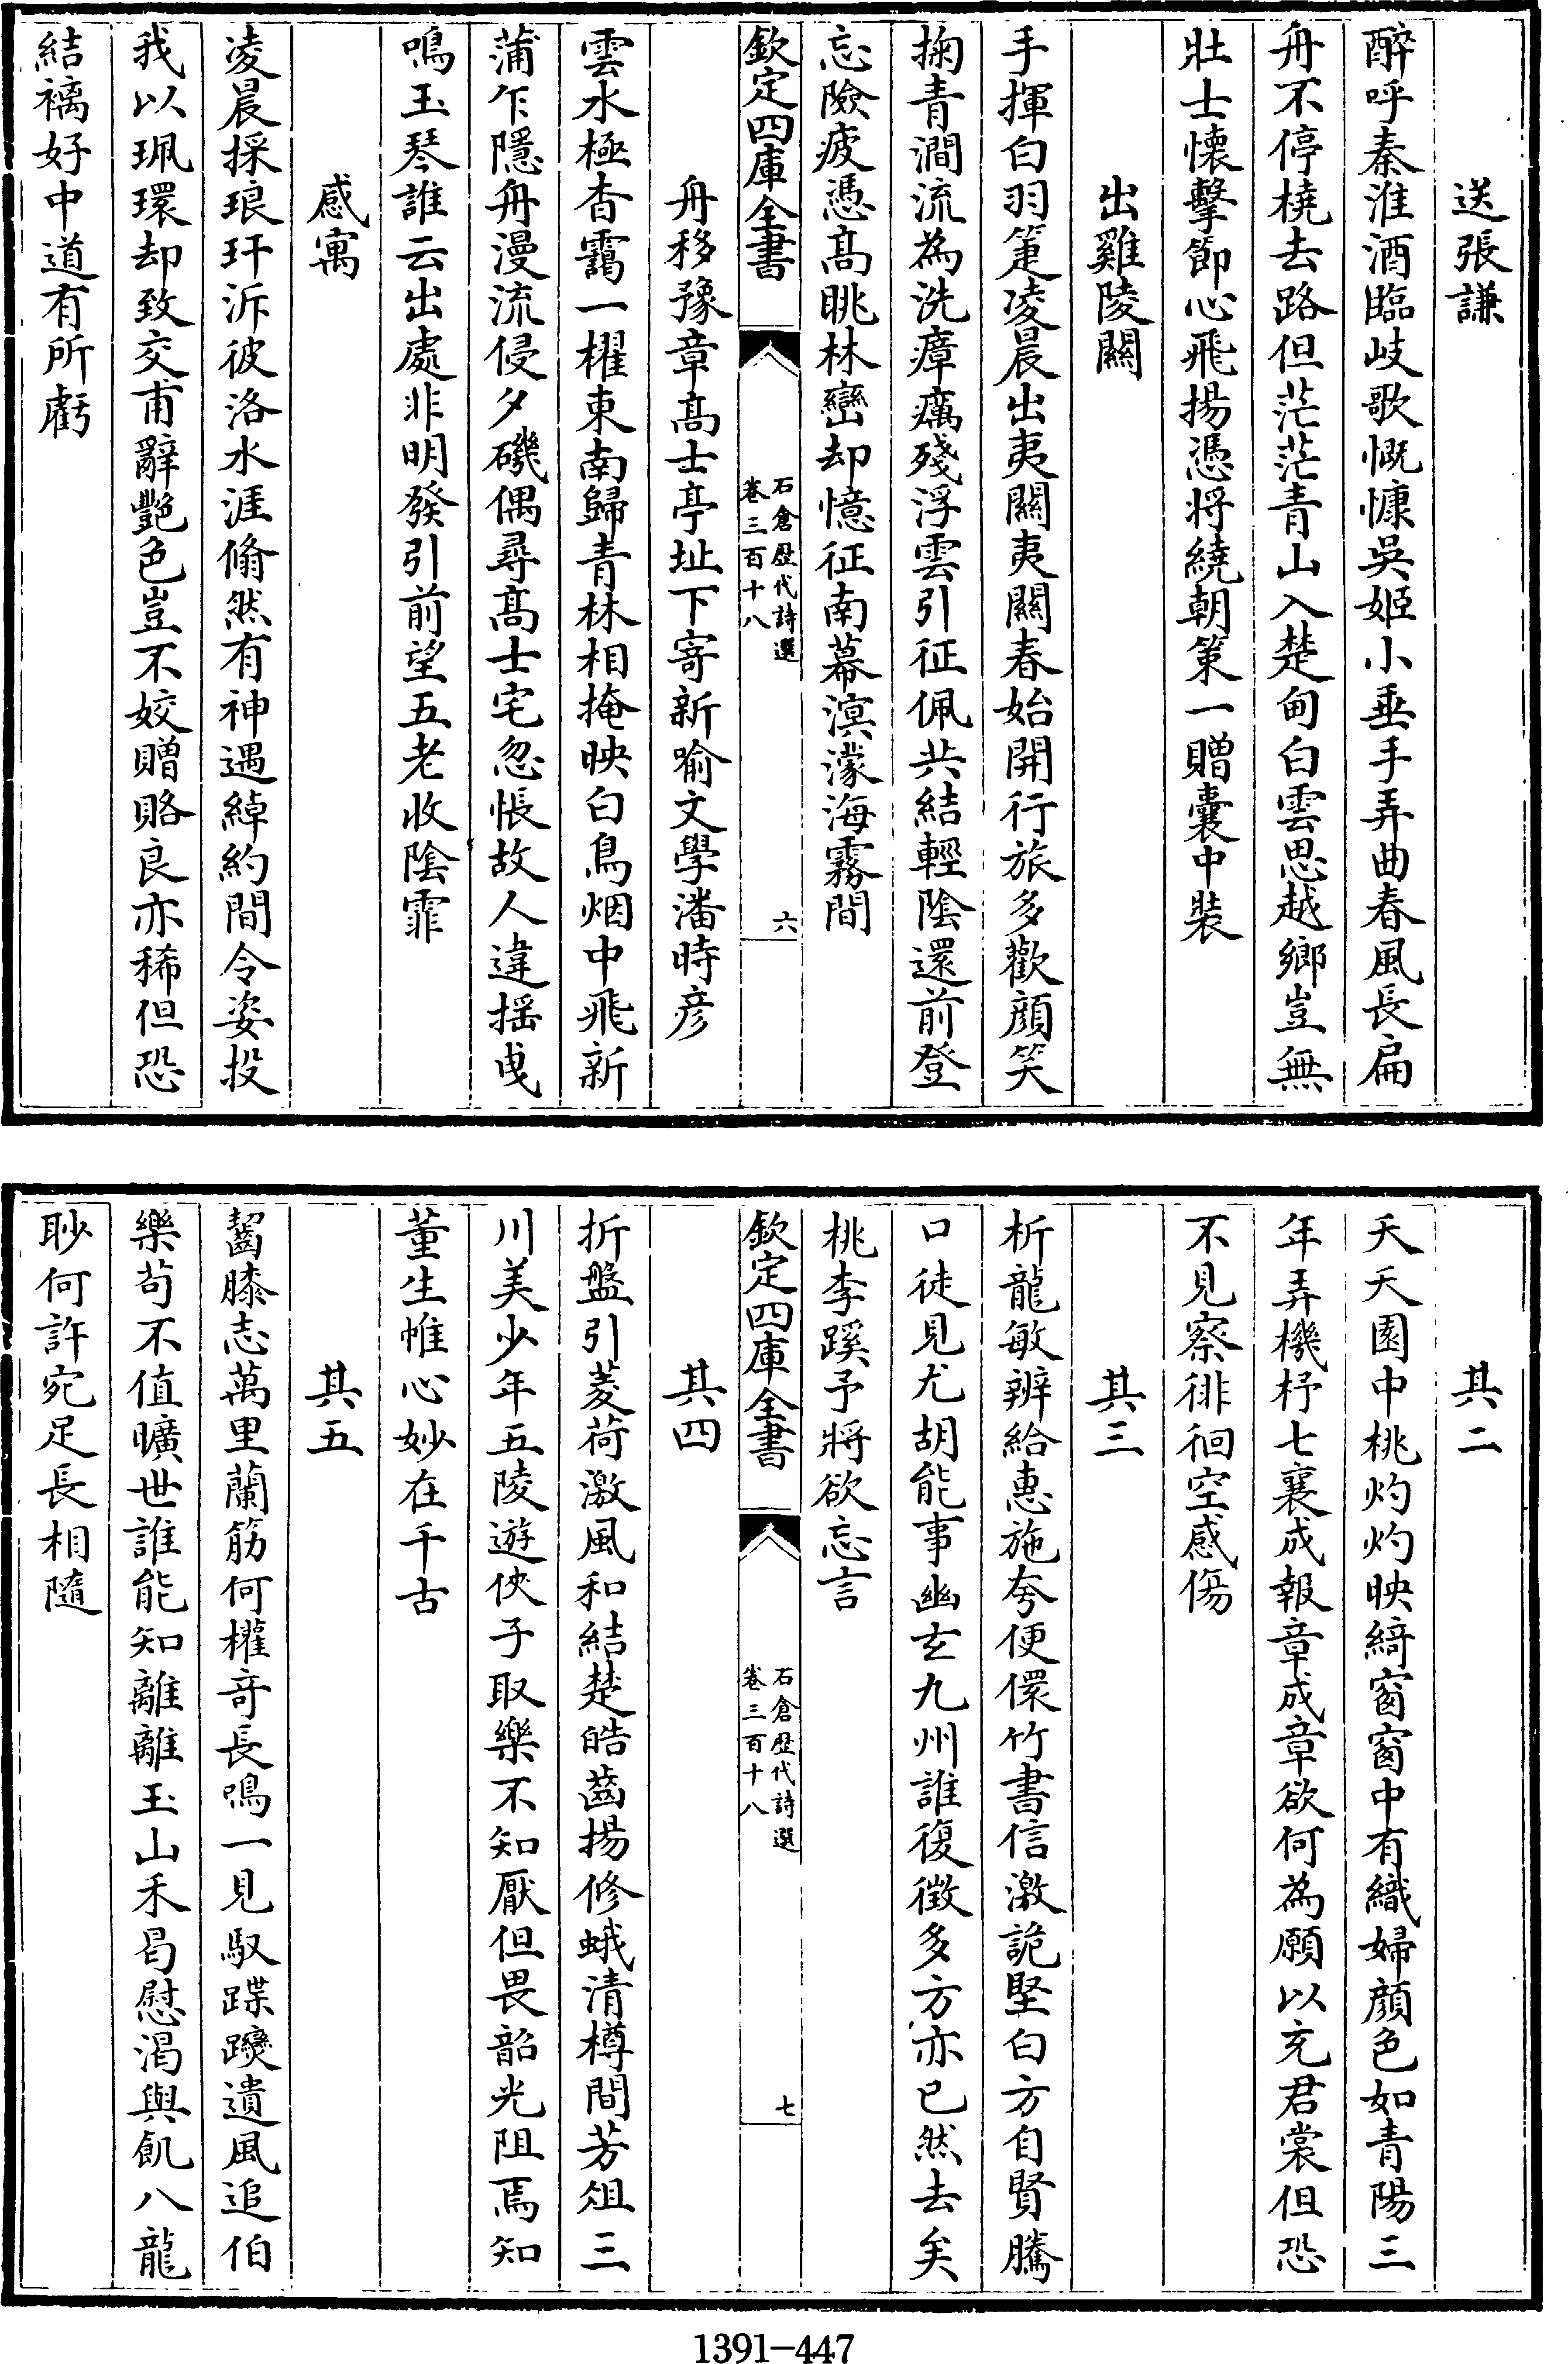 送張謙
醉呼秦淮酒臨岐歌慨慷吳姬小垂手弄曲春風長扁
舟不停橈去路但茫茫青山入楚甸白雲思越鄉豈無
壯士懷擊節心飛揚憑將繞朝策一贈囊中裝
出雞陵關
手揮白羽箑凌晨出夷關夷關春始開行旅多歡顔笑
掬青澗流為洗瘴癘殘浮雲引征佩共結輕陰還前登
忘險疲憑高眺林巒却憶征南幕溟濛海霧間
欽定四庫全書
石倉歷代詩選
卷三百十八
六
舟移豫章高士亭址下寄新喻文學潘時彦
雲水極杳靄一櫂東南歸青林相掩映白鳥烟中飛新
蒲乍隱舟漫流侵夕磯偶尋高士宅忽悵故人違揺曵
鳴玉琴誰云出處非明發引前望五老收陰霏
感寓
凌晨採琅玕泝彼洛水涯翛然有神遇綽約間令姿投
我以珮環却致交甫辭艷色豈不姣贈賂良亦稀但恐
結褵好中道有所虧
其二
夭夭園中桃灼灼映綺窗窗中有織婦顔色如青陽三
年弄機杼七襄成報章成章欲何為願以充君裳但恐
不見察徘徊空感傷
其三
析龍敏辨給惠施夸便儇竹書信激詭堅白方自賢騰
口徒見尤胡能事幽玄九州誰復徵多方亦已然去矣
桃李蹊予將欲忘言
欽定四庫全書
石倉歷代詩選
卷三百十八
七
其四
折盤引菱荷激風和結楚皓齒揚修蛾清樽間芳俎三
川美少年五陵遊俠子取樂不知厭但畏韶光阻焉知
董生帷心妙在千古
其五
齧膝志萬里蘭筋何權奇長鳴一見馭蹀躞遺風追伯
樂苟不值曠世誰能知離離玉山禾曷慰渴與飢八龍
眇何許宛足長相隨
1391-447